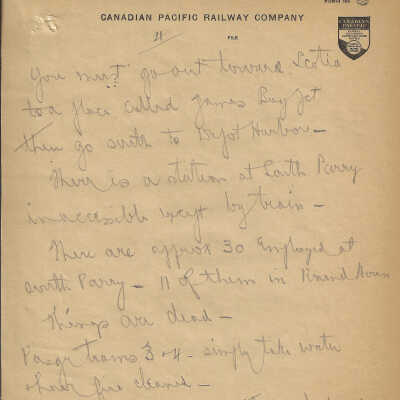 CANADIAN PACIFIC RAILWAY COMPANY
21
FILE
You must go out toward Scotia
to a place called James Bay Jct
then go south to Depot Harbor -
There is a station at South Parry
inaccessible except by train -
There are approx 30 Employed at
south Parry - 11 of them in Round House
Things are dead -
Pasgr trains 3 & 4 - simply take water
& have fire cleaned -